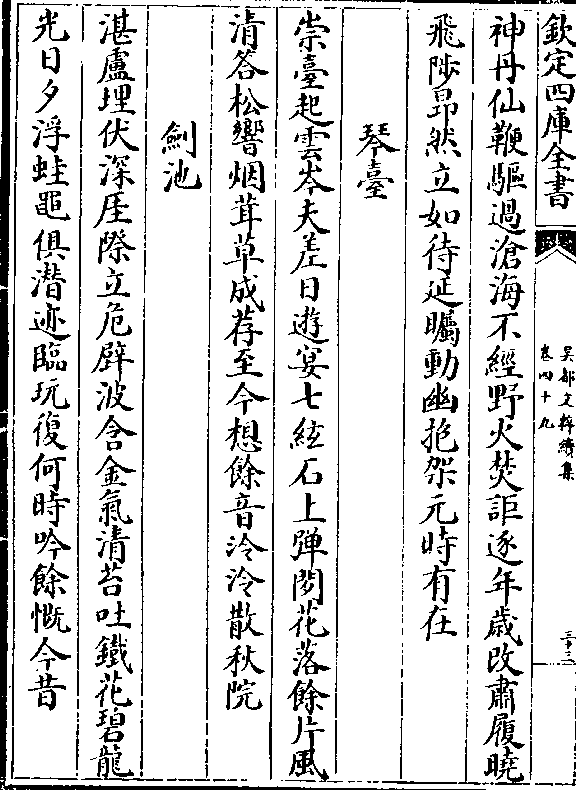 欽定四庫全書
吳都文粹續集
卷四十九
三十三
神丹仙鞭驅過滄海不經野火焚詎逐年歳改肅履曉
飛陟昻然立如待延矚動幽抱架元時有在
琴臺
崇臺起雲岑夫差日遊宴七絃石上彈閴花落餘片風
清答松響烟茸草成荐至今想餘音泠泠散秋院
劍池
湛盧埋伏深厓際立危壁波含金氣清苔吐鐵花碧龍
光日夕浮蛙黽俱潛迹臨玩復何時吟餘慨今昔